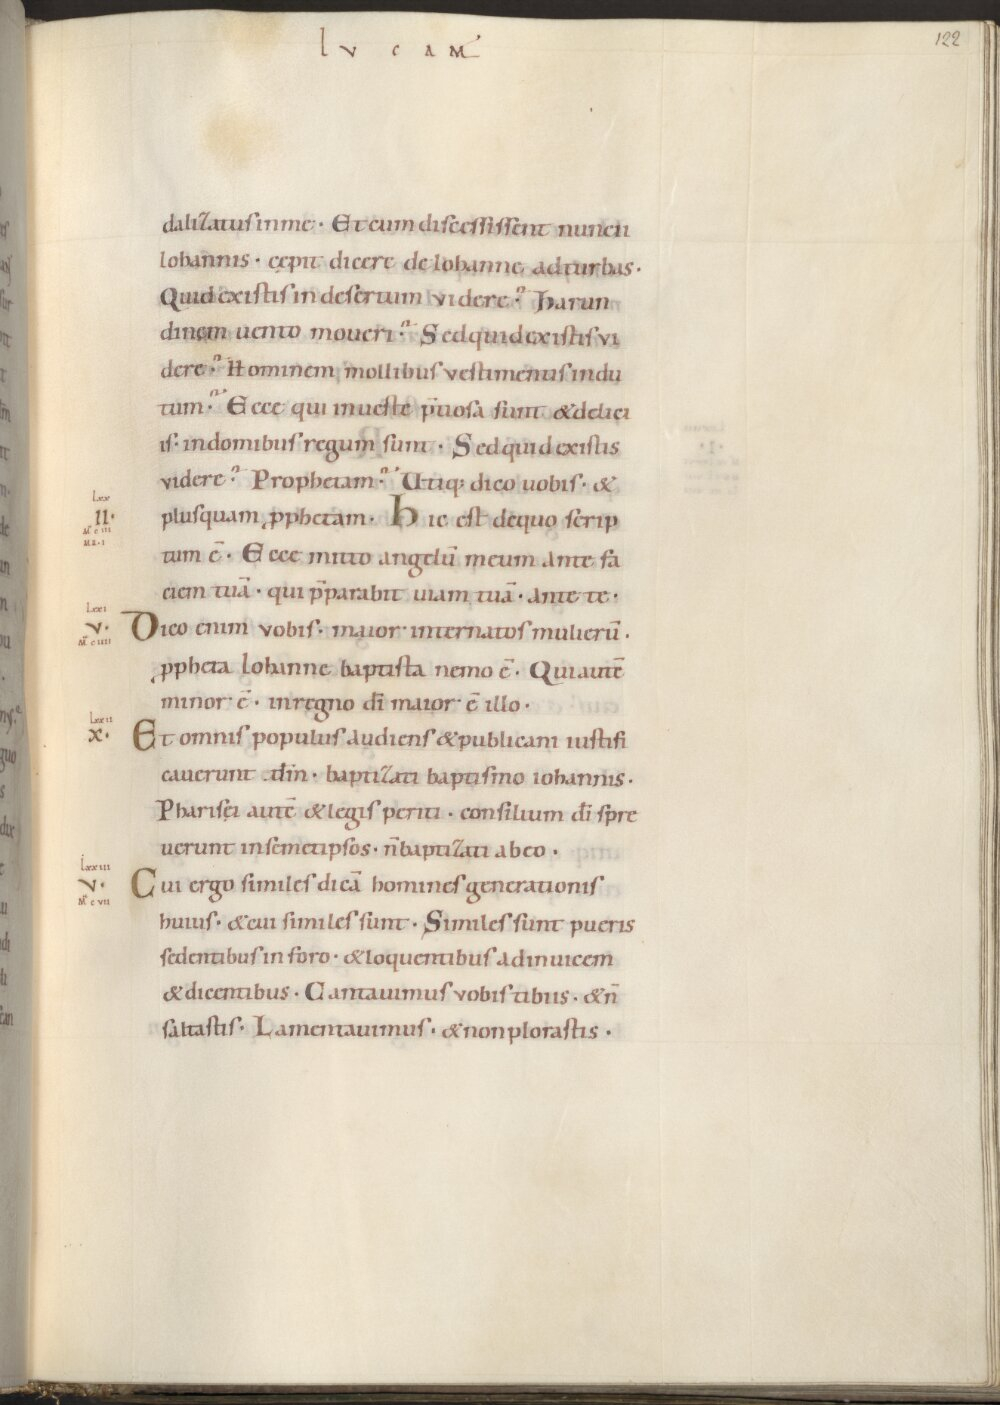 lv c a m
122
dalizatuſ in me · Et cum diſceſſiſſent nuncii
Iohannis · cępit dicere de Iohanne ad turbas ·
Quid existiſ in desertum videre ? harun
dinem uento moueri ? Sed quid existiſ vi
dere ? Hominem mollibuſ veſtimentiſ indu
tum ? Ecce qui in ueſte p̄tiosa sunt & delici
iſ · in domibuſ regum sunt · Sed quid existis
videre ? Prophetam ? Utiq; dico uobiſ · &
pluſquam ꝓphetam · hic eſt de quo scrip
tum ē · Ecce mitto angelū meum ante fa
ciem tuā · qui p̄parabit uiam tuā · ante te ·
Dico enim vobiſ · maior inter natoſ mulierū ·
ꝓpheta Iohanne baptiſta nemo ē · Qui autē
minor ē · in regno dī maior ē illo ·
Et omnis populuſ audienſ & publicani iuſtifi
cauerunt dm̄ · baptizati baptiſmo iohannis ·
Phariſęi autē & legiſ periti · consilium dī spre
uerunt in semetipſos · n̄ baptizati ab eo ·
Cui ergo similes dicā homineſ generationiſ
huiuſ · & cui similes sunt · Similes sunt pueris
sedentibuſ in foro · & loquentibuſ ad inuicem
& dicentibus · Cantauimuſ vobiſ tibiis · & n̄
saltaſtiſ · Lamentauimuſ · & non ploraſtis ·
lxx
II ·
M̄ c iii
MR · I
lxxi
v ·
M̄ c iiii
lxxii
x ·
lxxiii
v ·
M̄ c vii